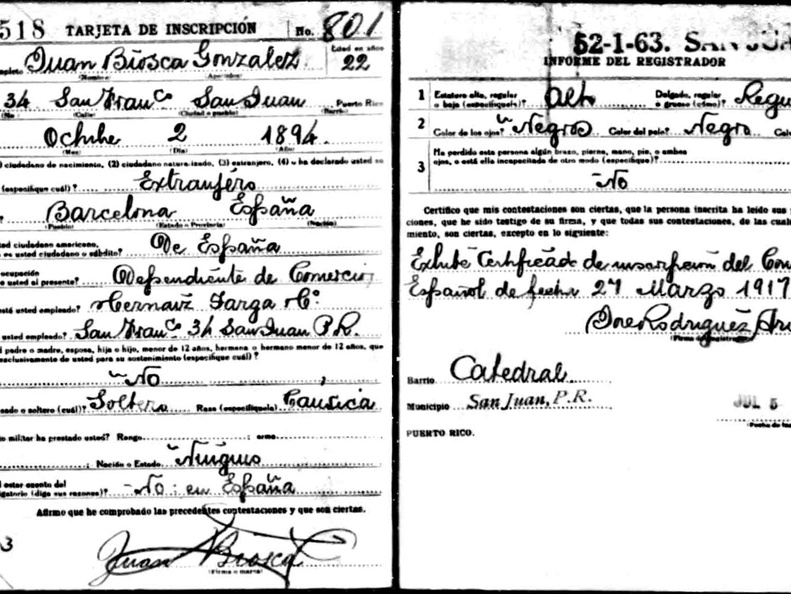 518 TARJETA DE INSCRIPCIÓN No. 801
Juan Biosca Gonzalez
Edad en años
22
(Nombre) (Apellidos)
34 San Franco San Juan Puerto Rico
(No (Calle) (Ciudad o pueblo) (Barrio)
Octbre 2 1894
(Mes) (Día) (Año)
ciudadano de nacimiento, (2) ciudadano naturalizado, (3) extranjero, (4) o ha declarado usted su
(especifique cuál)? Extranjéro
Barcelona España
(Pueblo) (Estado o Provincia) (Nación)
ted ciudadano americano,
es usted ciudadano o súbdito? De España
ocupación
usted al presente? Dependiente de Comercio,
está usted empleado?
usted empleado? San Franco 34 San Juan P.R.
padre o madre, esposa, hija o hijo, menor de 12 años, hermana o hermano menor de 12 años, que
exclusivamente de usted para su sostenimiento (especifique cuál)?
No
sado o soltero (cuál)? Soltero Raza (especifíquela) Caucica
o militar ha prestado usted? Rango arma
Nación o Estado Ninguno
estar exento del
(diga sus razones)? -No: en España
Afirmo que he comprobado las precedentes contestaciones y que son ciertas.
3
Juan Biosca G
(Firma o marca)
52-1-63. SAN JUA
INFORME DEL REGISTRADOR
1 Estatura alto, regular o bajo (especifíquela)? alto Delgado, regular o grueso (cómo)? Regu
2 Color de los ojos? Negros Color del pelo? Negro Cal
3 Ha perdido esta persona algún brazo, pierna, mano, pie, o ambos
ojos, o está ella incapacitada de otro modo (especifique)?
No
Certifico que mis contestaciones son ciertas, que la persona inscrita ha leído sus
ciones, que he sido testigo de su firma, y que todas sus contestaciones, de las cual
miento, son ciertas, excepto en lo siguiente:
Exhibe Certificado de inscripcion del Con
Español de fecha 27 Marzo 1917
Rodriguez
(Firma del registrador)
Barrio Catedral
Municipio San Juan, P.R.
JUL 5
PUERTO RICO.
(Fecha de